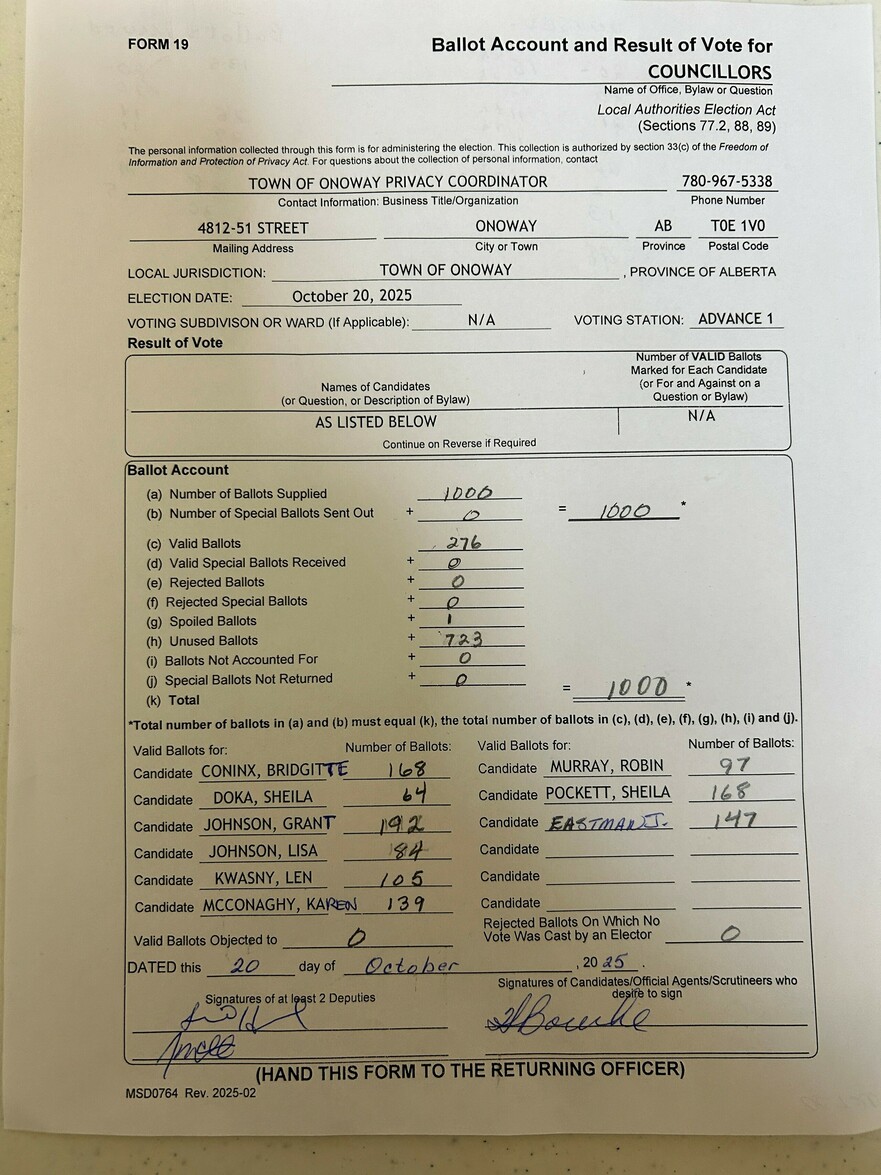 FORM 19
Ballot Account and Result of Vote for
COUNCILLORS
Name of Office, Bylaw or Question
Local Authorities Election Act
(Sections 77.2, 88, 89)
The personal information collected through this form is for administering the election. This collection is authorized by section 33(c) of the Freedom of
Information and Protection of Privacy Act. For questions about the collection of personal information, contact
TOWN OF ONOWAY PRIVACY COORDINATOR 780-967-5338
Contact Information: Business Title/Organization Phone Number
4812-51 STREET ONOWAY AB T0E 1V0
Mailing Address City or Town Province Postal Code
LOCAL JURISDICTION: TOWN OF ONOWAY , PROVINCE OF ALBERTA
ELECTION DATE: October 20, 2025
VOTING SUBDIVISON OR WARD (If Applicable): N/A VOTING STATION: ADVANCE 1
Result of Vote
Names of Candidates
(or Question, or Description of Bylaw)
Number of VALID Ballots
Marked for Each Candidate
(or For and Against on a
Question or Bylaw)
AS LISTED BELOW N/A
Continue on Reverse if Required
Ballot Account
(a) Number of Ballots Supplied 1000
(b) Number of Special Ballots Sent Out + 0 = 1000 *
(c) Valid Ballots 276
(d) Valid Special Ballots Received + 0
(e) Rejected Ballots + 0
(f) Rejected Special Ballots + 0
(g) Spoiled Ballots + 1
(h) Unused Ballots + 723
(i) Ballots Not Accounted For + 0
(j) Special Ballots Not Returned + 0
(k) Total = 1000 *
*Total number of ballots in (a) and (b) must equal (k), the total number of ballots in (c), (d), (e), (f), (g), (h), (i) and (j).
Valid Ballots for: Number of Ballots: Valid Ballots for: Number of Ballots:
Candidate CONINX, BRIDGITTE 168 Candidate MURRAY, ROBIN 97
Candidate DOKA, SHEILA 64 Candidate POCKETT, SHEILA 168
Candidate JOHNSON, GRANT 192 Candidate EASTMAN J. 147
Candidate JOHNSON, LISA 84 Candidate
Candidate KWASNY, LEN 105 Candidate
Candidate MCCONAGHY, KAREN 139 Candidate
Valid Ballots Objected to 0 Rejected Ballots On Which No
Vote Was Cast by an Elector 0
DATED this 20 day of October , 20 25 .
Signatures of at least 2 Deputies
Signatures of Candidates/Official Agents/Scrutineers who
desire to sign
(HAND THIS FORM TO THE RETURNING OFFICER)
MSD0764 Rev. 2025-02